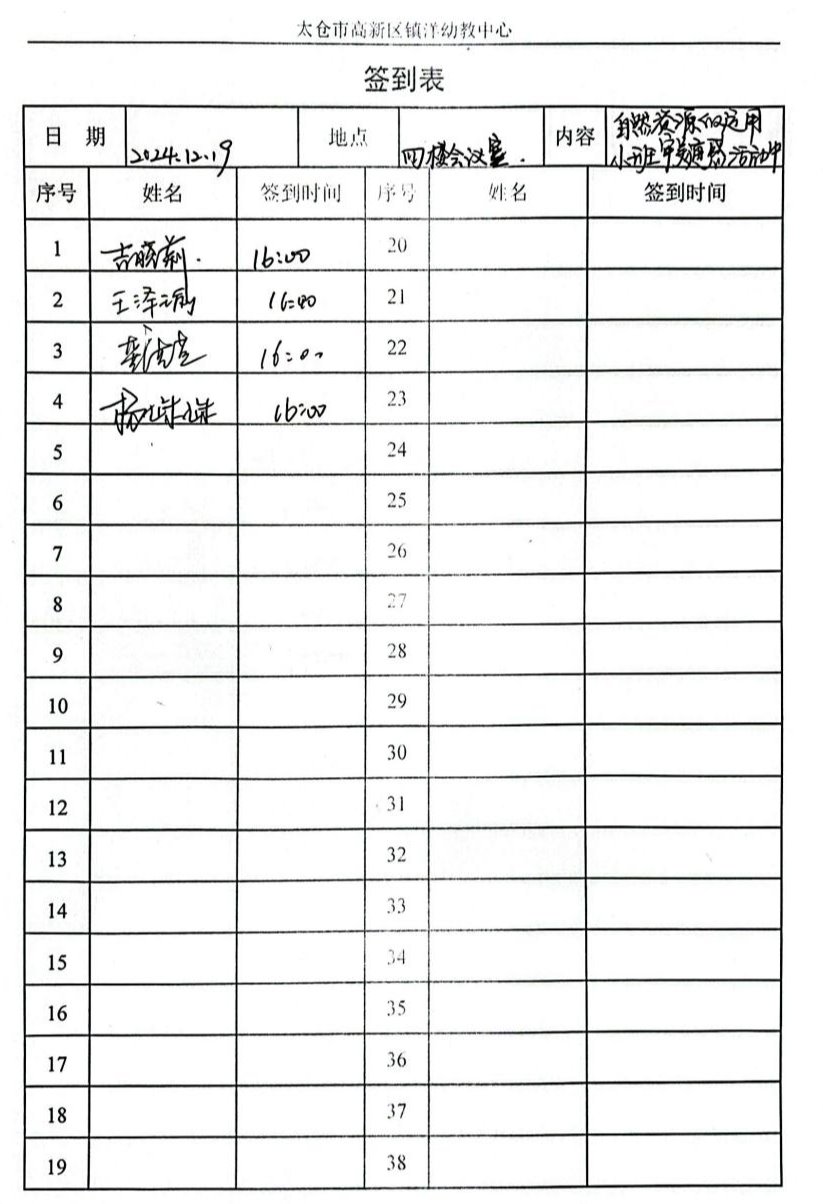 太仓市高新区镇洋幼教中心
签到表
日 期 2024.12.19 地点 四楼会议室. 内容 自然资源的运用
小班审美 活动中
序号 姓名 签到时间 序号 姓名 签到时间
1 吉晓莉. 16:00 20
2 王泽 16:00 21
3 16:00 22
4 杨 16:00 23
5 24
6 25
7 26
8 27
9 28
10 29
11 30
12 31
13 32
14 33
15 34
16 35
17 36
18 37
19 38